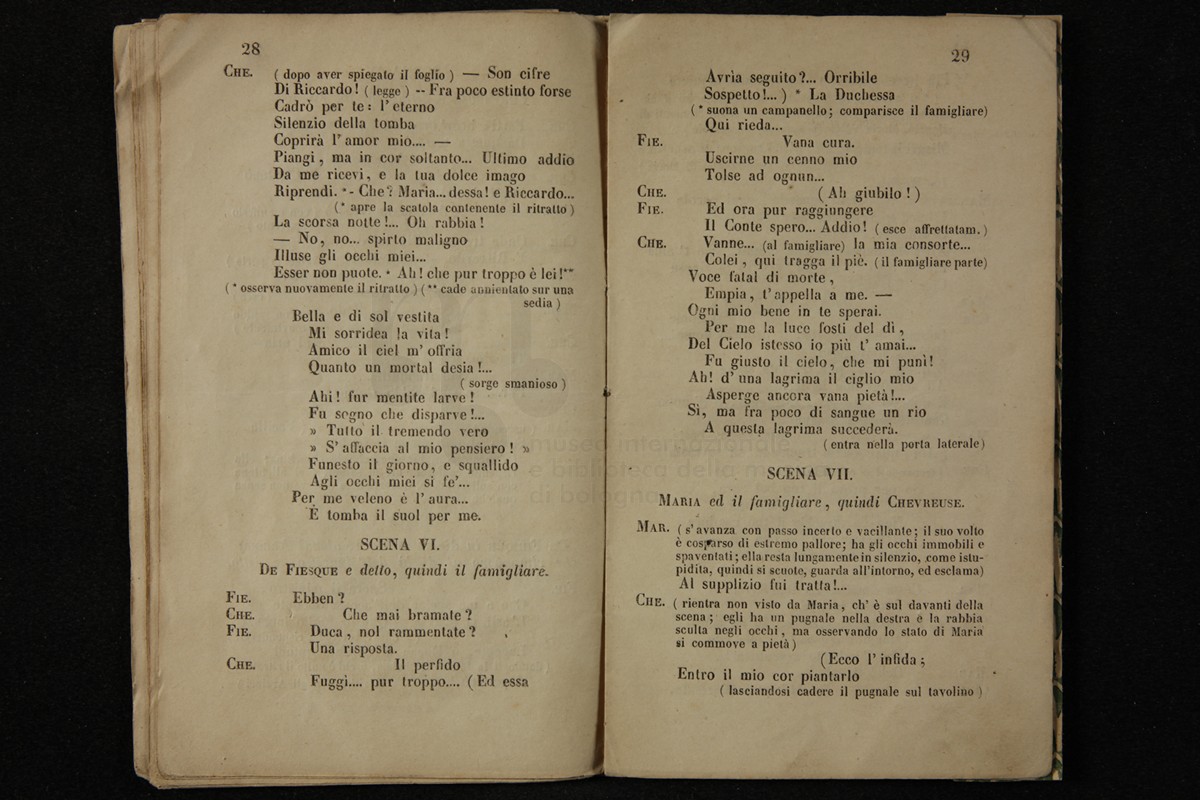 28
CHE. ( dopo aver spiegato il foglio ) — Son cifre
Di Riccardo ! ( legge ) -- Fra poco estinto forse
Cadrò per te : l' eterno
Silenzio della tomba
Coprirà l' amor mio.... —
Piangi , ma in cor soltanto... Ultimo addio
Da me ricevi, e la tua dolce imago
Riprendi. * - Che ? Maria... dessa ! e Riccardo...
(* apre la scatola contenente il ritratto )
La scorsa notte !... Oh rabbia !
— No, no... spirto maligno
Illuse gli occhi miei...
Esser non puote. * Ah ! che pur troppo è lei !**
( * osserva nuovamente il ritratto ) ( ** cade annientato sur una
sedia )
Bella e di sol vestita
Mi sorridea la vita !
Amico il ciel m' offria
Quanto un mortal desia !...
( sorge smanioso )
Ahi ! fur mentite larve !
Fu sogno che disparve !...
» Tutto il tremendo vero
» S' affaccia al mio pensiero ! »
Funesto il giorno, e squallido
Agli occhi miei si fe'...
Per me veleno è l' aura...
È tomba il suol per me.
SCENA VI.
DE FIESQUE e detto, quindi il famigliare.
FIE. Ebben ?
CHE. Che mai bramate ?
FIE. Duca , nol rammentate ?
Una risposta.
CHE. Il perfido
Fuggì.... pur troppo.... ( Ed essa
29
Avrìa seguito ?... Orribile
Sospetto !... ) * La Duchessa
( * suona un campanello; comparisce il famigliare)
Qui rieda...
FIE. Vana cura.
Uscirne un cenno mio
Tolse ad ognun...
CHE. ( Ah giubilo ! )
FIE. Ed ora pur raggiungere
Il Conte spero... Addio ! ( esce affrettatam. )
CHE. Vanne... (al famigliare) la mia consorte...
Colei , qui tragga il piè. ( il famigliare parte)
Voce fatal di morte ,
Empia, t' appella a me. —
Ogni mio bene in te sperai.
Per me la luce fosti del dì ,
Del Cielo istesso io più t' amai...
Fu giusto il cielo, che mi punì !
Ah ! d' una lagrima il ciglio mio
Asperge ancora vana pietà !...
Sì, ma fra poco di sangue un rio
A questa lagrima succederà.
( entra nella porta laterale)
SCENA VII.
MARIA ed il famigliare , quindi CHEVREUSE.
MAR. ( s' avanza con passo incerto e vacillante ; il suo volto
è cosparso di estremo pallore; ha gli occhi immobili e
spaventati ; ella resta lungamente in silenzio, come istu-
pidita, quindi si scuote, guarda all'intorno, ed esclama)
Al supplizio fui tratta !...
CHE. ( rientra non visto da Maria, ch' è sul davanti della
scena ; egli ha un pugnale nella destra e la rabbia
sculta negli occhi , ma osservando lo stato di Maria
si commove a pietà )
(Ecco l' infida ;
Entro il mio cor piantarlo
( lasciandosi cadere il pugnale sul tavolino )
museo internazionale
e biblioteca della musica
di bologna